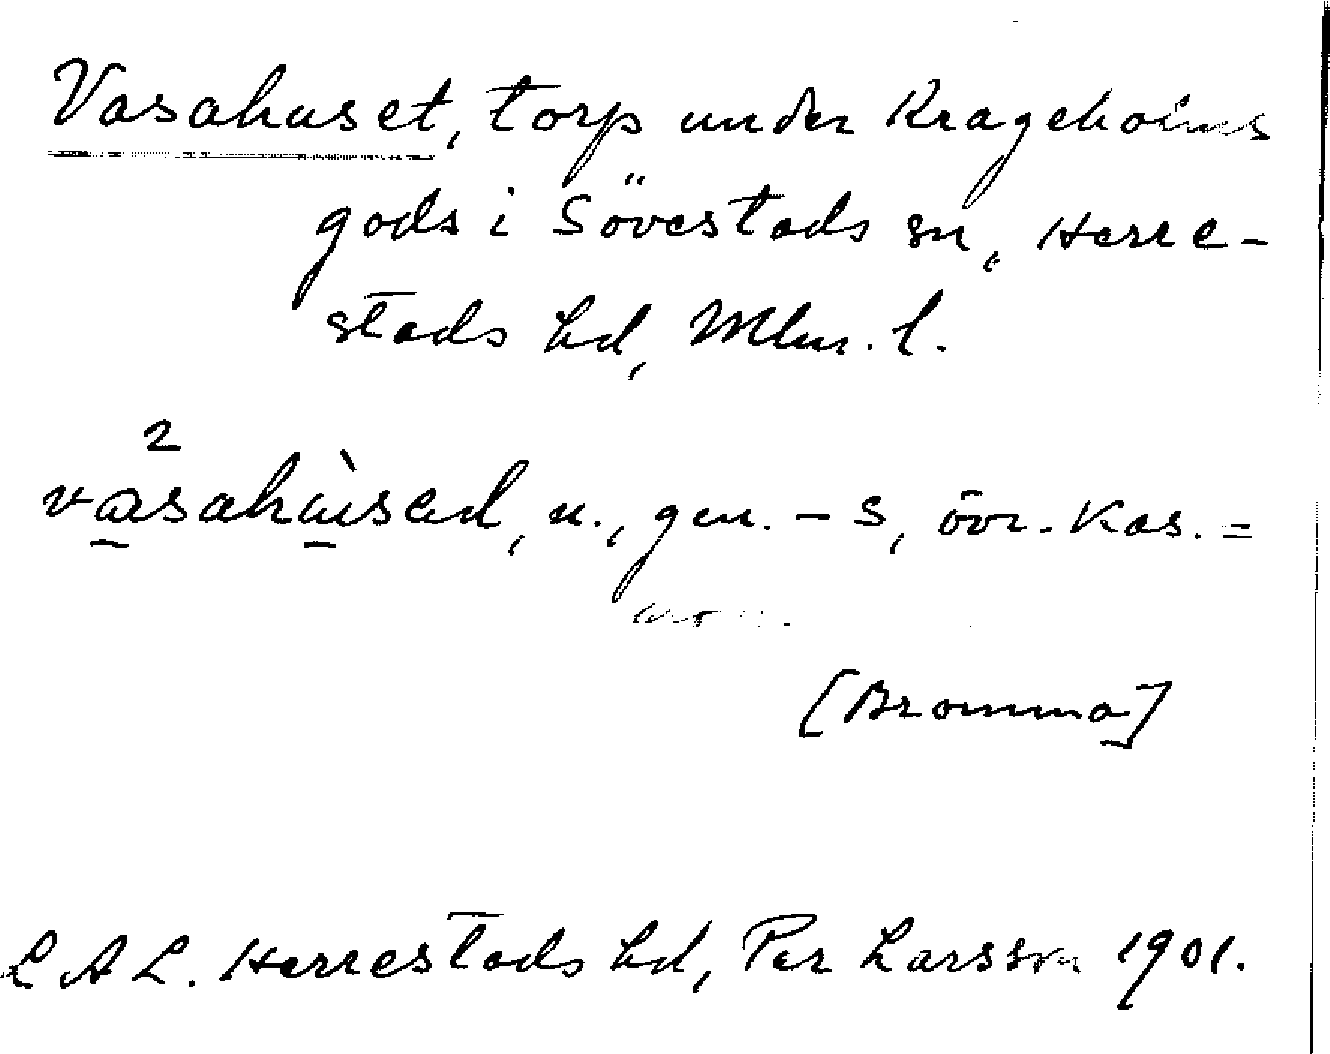 Vasahuset, torp under Krageholms
gods i Sövestads sn, Herre-
stads hd, Mlm. l.
2
vasahùsed, n., gen. - s, övr. kas. =
nom.
[Bromma]
L A L. Herrestads hd, Per Larsson 1901.